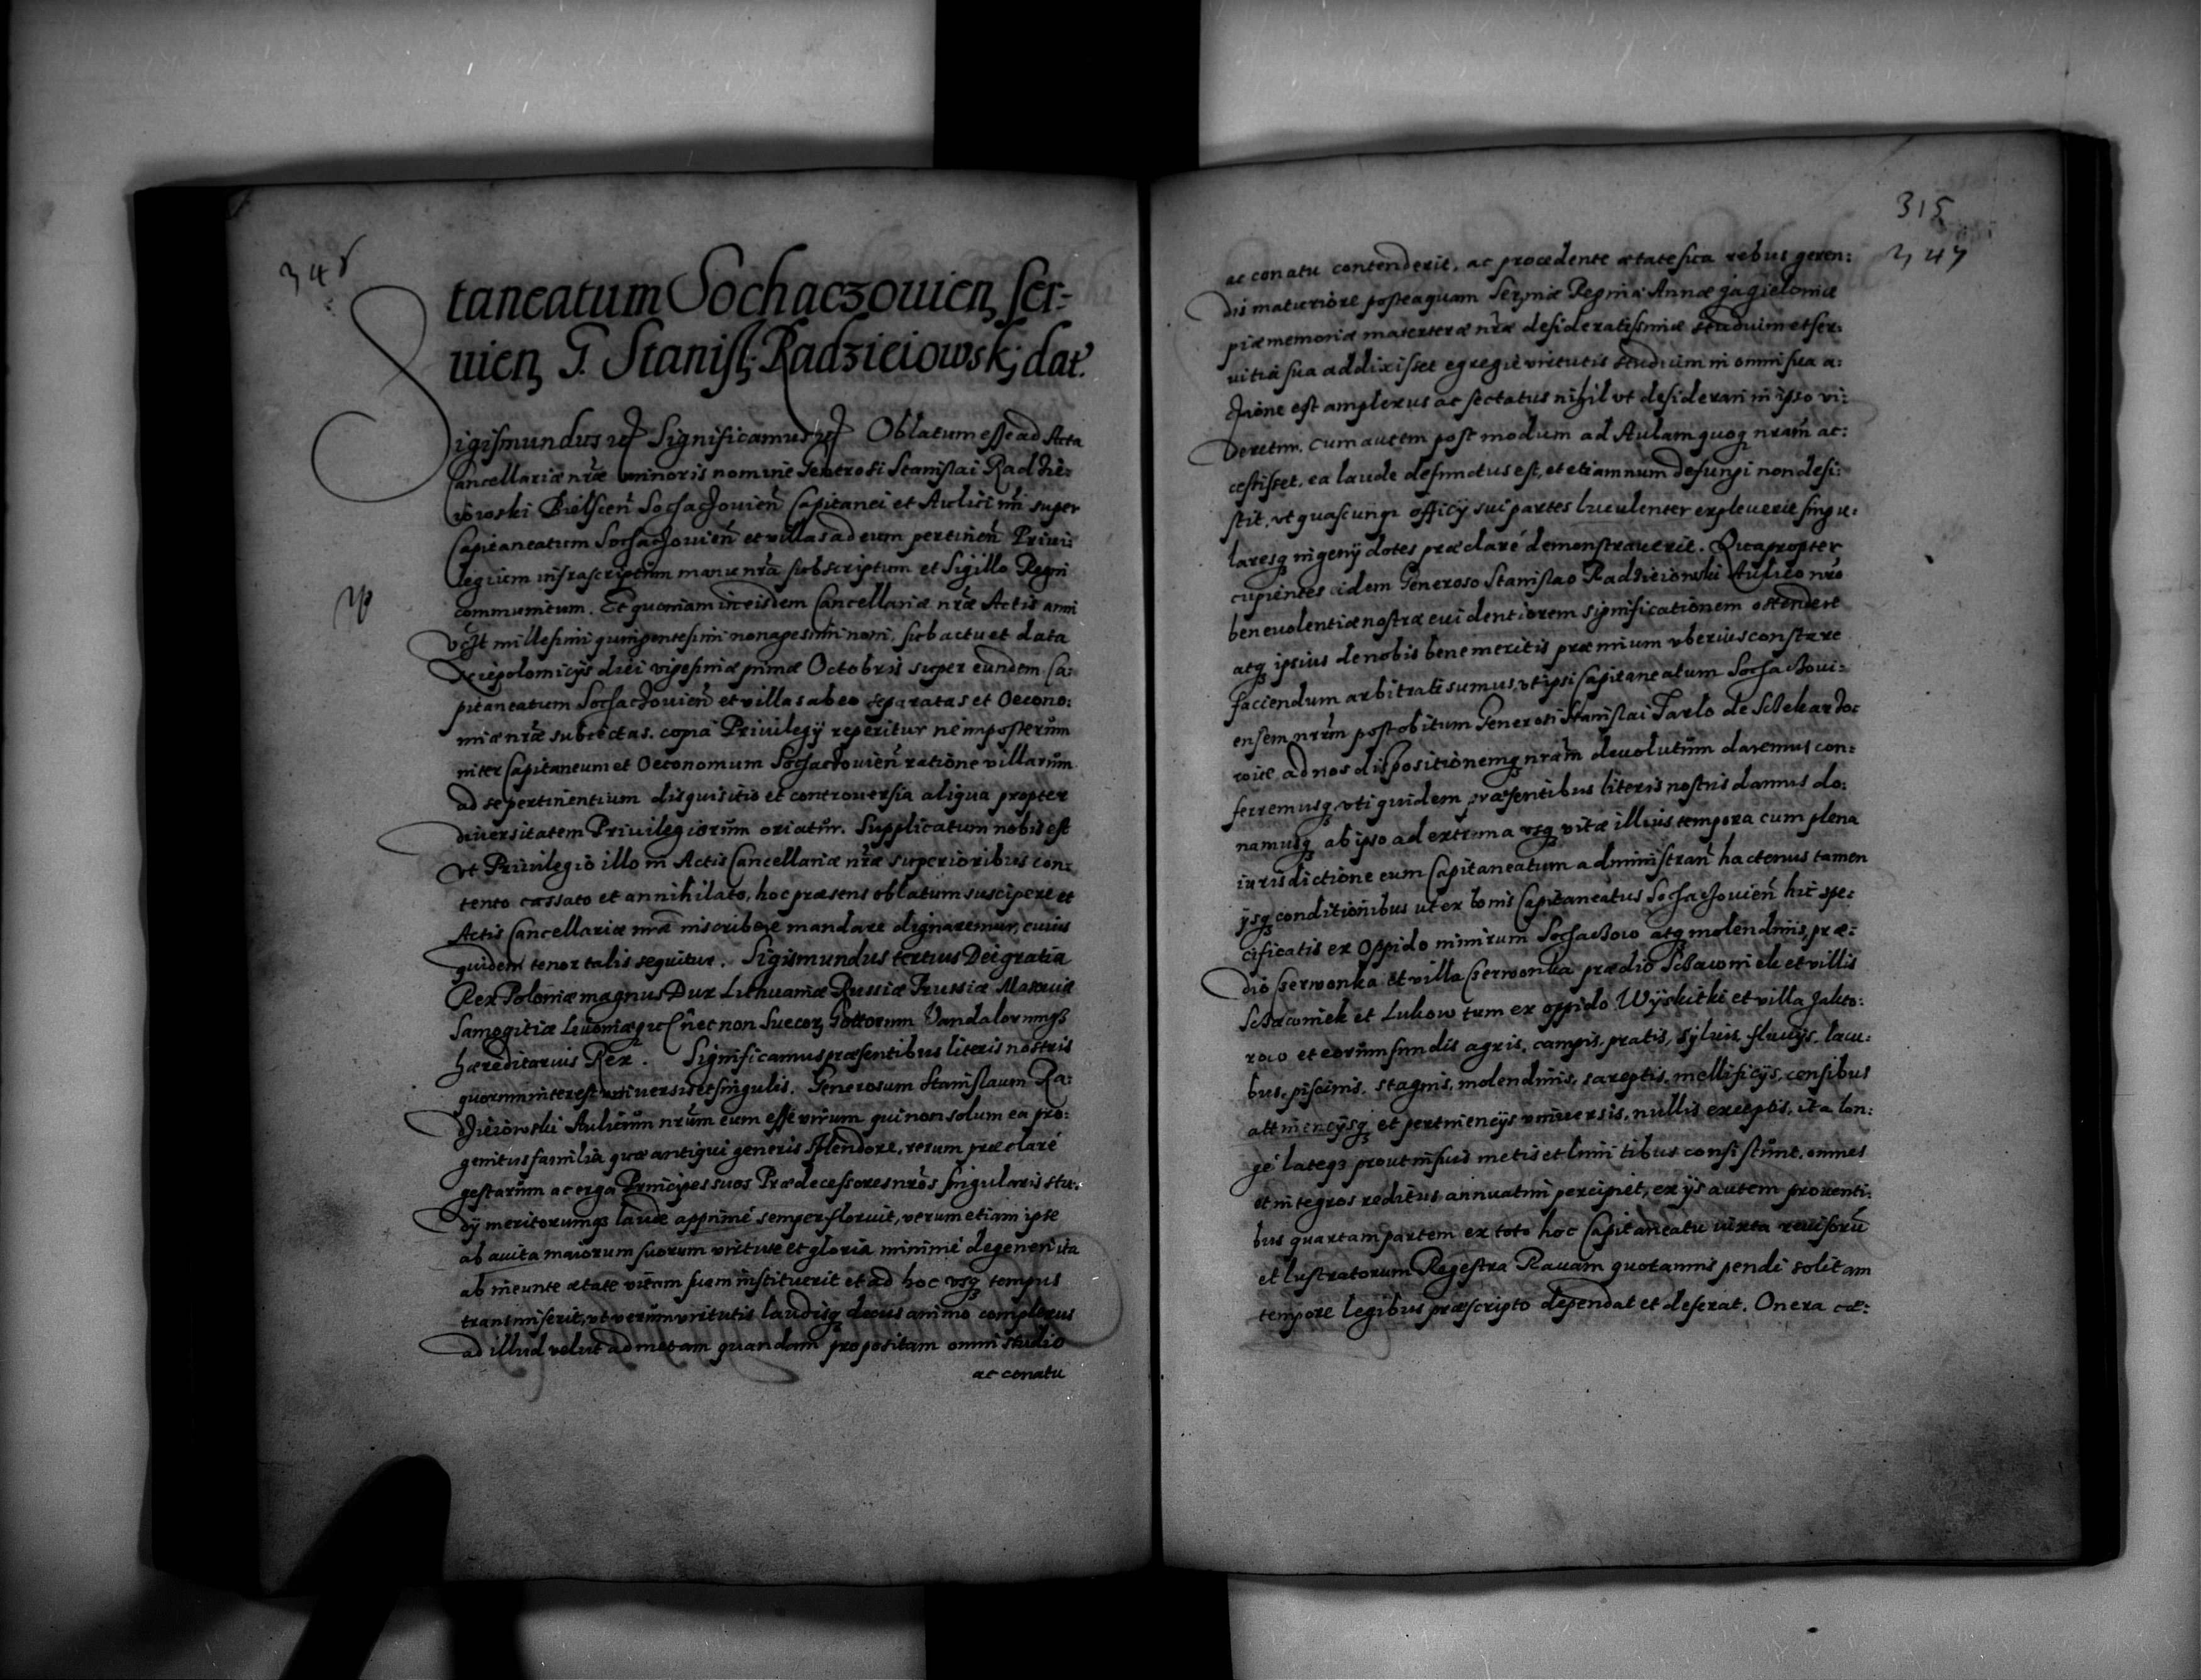 346
taneatum Sochaczouien ser-
uien G. Stanisl: Radzieiowski dat.
Sigismundus etc Significamus etc Oblatum esse ad Acta
Cancellariæ nræ minoris nomine Generosi Stanislai Radzie:
iowski Bielscen Sochaczouien Capitanei et Aulici nri super
Capitaneatum Sochaczouien et villas ad eum pertinen Priui:
legium infrascriptum manu nra subscriptum et Sigillo Regni
communitum. Et quoniam in eisdem Cancellariæ nræ Actis anni
millesimi quingentesimi nonagesimi noni, sub actu et data
diei vigesimæ primæ Octobris super eundem Ca:
pitaneatum Sochaczouien et villas ab eo separatas et Oecono:
miæ nræ subiectas. copia Priuilegij reperitur ne imposterum
inter Capitaneum et Oeconomum Sochaczouien ratione villarum
ad se pertinentium disquisitio et controuersia aliqua propter
diuersitatem Priuilegiorum oriatur. Supplicatum nobis est
vt Priuilegio illo in Actis Cancellariæ nræ superioribus con:
tento cassato et annihilato, hoc præsens oblatum suscipere et
Actis Cancellariæ nræ inscribere mandare dignaremur, cuius
quidem tenor talis sequitur. Sigismundus tertius Dei gratia
Rex Poloniæ magnus Dux Lithuaniæ Russiæ Prussiæ Masouiæ
Samogitiæ Liuoniæq etc necnon Suecor Gottorum Vandalorumq
hæreditarius Rex. Significamus præsentibus literis nostris
quorum interest vniuersis et singulis. Generosum Stanislaum Ra:
dzieiowski Aulicum nrum eum esse virum qui non solum ea pro:
genitus familia quæ antiqui generis splendore, rerum præclaré
gestarum ac erga Principes suos Prædecessores nros singularis stu:
dij meritorumq laude apprimé semper floruit, verum etiam ipse
ab auita maiorum suorum virtute et gloria minimé degener ita
ab ineunte ætate vitam suam instituerit et ad hoc vsq tempus
transmiserit, vt verum virtutis laudisq decus animo complexus
ad illud velut ad metam quandam propositam omni studio
ac conatu
315
347
ac conatu contenderit, ac procedente ætate sua rebus geren:
dis maturiore posteaquam Sermæ Reginæ Annæ Jagieloniæ
piæ memoriæ materteræ nræ desideratissimæ studium et ser:
uitia sua addixisset egregie virtutis studium in omni sua a:
ctione est amplexus ac sectatus nihil vt desiderari in ipso vi:
deretur. cum autem post modum ad Aulam quoq nram ac:
cessisset, ea laude defunctus est, et etiamnum defungi non desi:
stit, vt quascunq officij sui partes luculenter expleuerit singu:
laresq ingenij dotes præclaré demonstrauerit. Quapropter
cupientes eidem Generoso Stanislao Radzieiowski Aulico nro
beneuolentiæ nostræ euidentiorem significationem ostendere
atq ipsius de nobis bene meritis præmium vberius constare
faciendum arbitrati sumus, vt ipsi Capitaneatum Sochaczoui:
ensem nrum post obitum Generosi Stanislai Tarlo de Sczekarzo:
wice ad nos dispositionemq nram deuolutum daremus con:
ferremusq vti quidem præsentibus literis nostris damus do:
namusq ab ipso ad extrema vsq vitæ illius tempora cum plena
iurisdictione eum Capitaneatum administran hactenus tamen
ijsq conditionibus ut ex bonis Capitaneatus Sochaczouien hic spe:
cificatis ex Oppido nimirum Sochaczow atq molendinis, præ:
dio Czerwonka et villa Czerwonka prædio Sczawinek et villis
Sczawinek et Lukow tum ex oppido Wyskitki et villa Jakto:
row et eorum fundis agris, campis, pratis, syluis, fluuijs, lacu:
bus, piscinis, stagnis, molendinis, mellificijs, censibus
attinencijsq et pertinencijs vniuersis, nullis exceptis, ita lon:
gé lateq prout in suis metis et limitibus consistunt, omnes
et integros reditus annuatim percipiet, ex ijs autem prouenti:
bus quartam partem ex toto hoc Capitaneatu iuxta reuisorum
et lustratorum Regestra Rauam quotannis pendi solitam
tempore legibus præscripto dependat et deferat. Onera cæ: